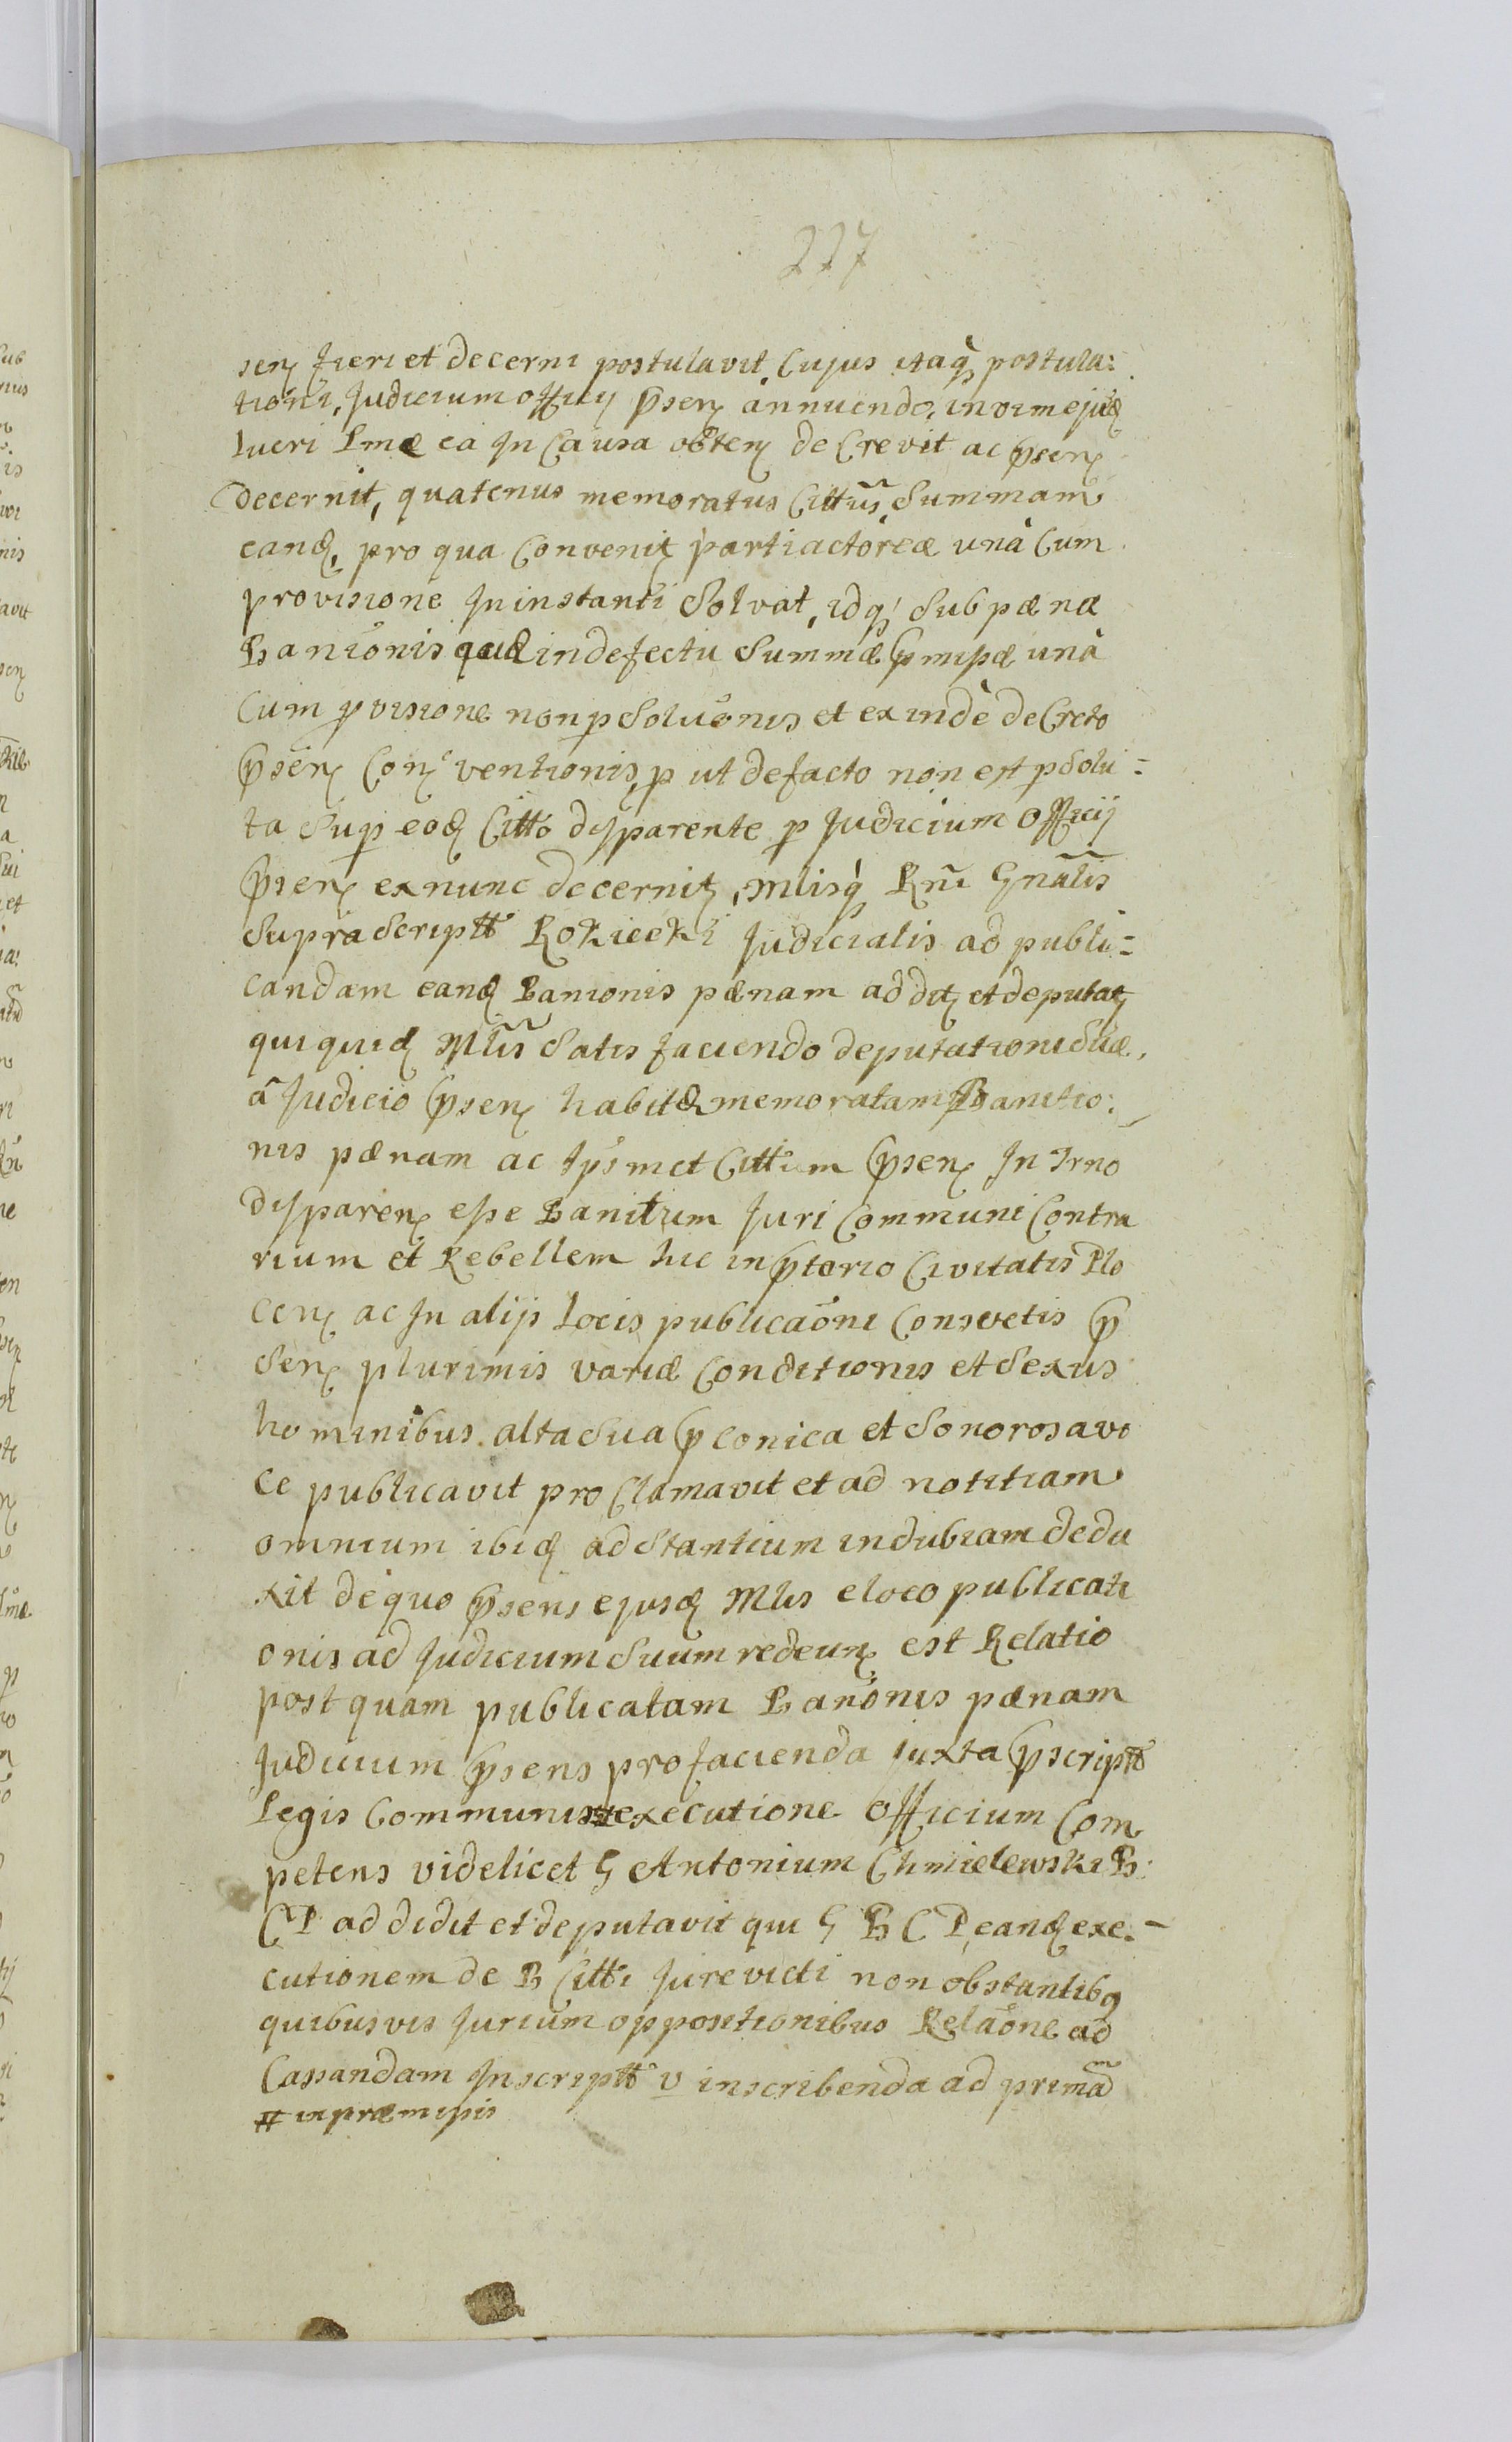 227
sen fieri et decerni postulavit, Cujus itaq postula:
tioni, Judicium officij psen annuendo, in vim ejusd
lucri Imæ ea In Causa obten deCrevit ac psen
decernit, quatenus memoratus Cittus, Summam
eand, pro qua Convenit parti actoreæ unà Cum
provisione In instanti Solvat, idq Sub pæna
Banionis quæ in defectu Summæ pmipæ unà
Cum pvisione non pSoluonis et exindè deCreto
psen Con ventionis, put de facto non est pSolu=
ta Sup eod Citto disparente p Judicium Officij
psen ex nunc decernit, Mlisq Rni Gnalis
SupraScriptt Rokicki Judicialis ad publi=
candam eand Banionis pænam addit et deputat
qui quid Mlis Satis faciendo deputationi Suæ,
â Judicio psen habitæ memoratam Banitio:
nis pænam ac Ipsmet Cittum psen In Trno
disparen esse Banitum Juri Communi Contra
rium et Rebellem hic in ptorio Civitatis Plo
cen ac In alijs Locis publicaoni Consvetis p
Sen plurimis variæ Conditionis et Sexus
hominibus alta Sua pconica et Sonorosa vo
ce publicavit pro Clamavit et ad notitiam
omnium ibid adStantium indubiam dedu
xit de quo psens ejusd Mlis e loco publicati
onis ad Judicium Suum redeun est Relatio
post quam publicatam Banonis pænam
Judicium psens pro facienda juxta pscriptt
Legis Communis # executione Officium Com
petens videlicet G Antonium Chmielewski B:
CP addidit et deputavit qui G B C P eand exe:-
cutionem de B Citti Jure victi non obstantibq
quibusvis Jurium oppositionibus Relaone ad
Cassandam Inscriptt v inscribenda ad prima
# in præmissis